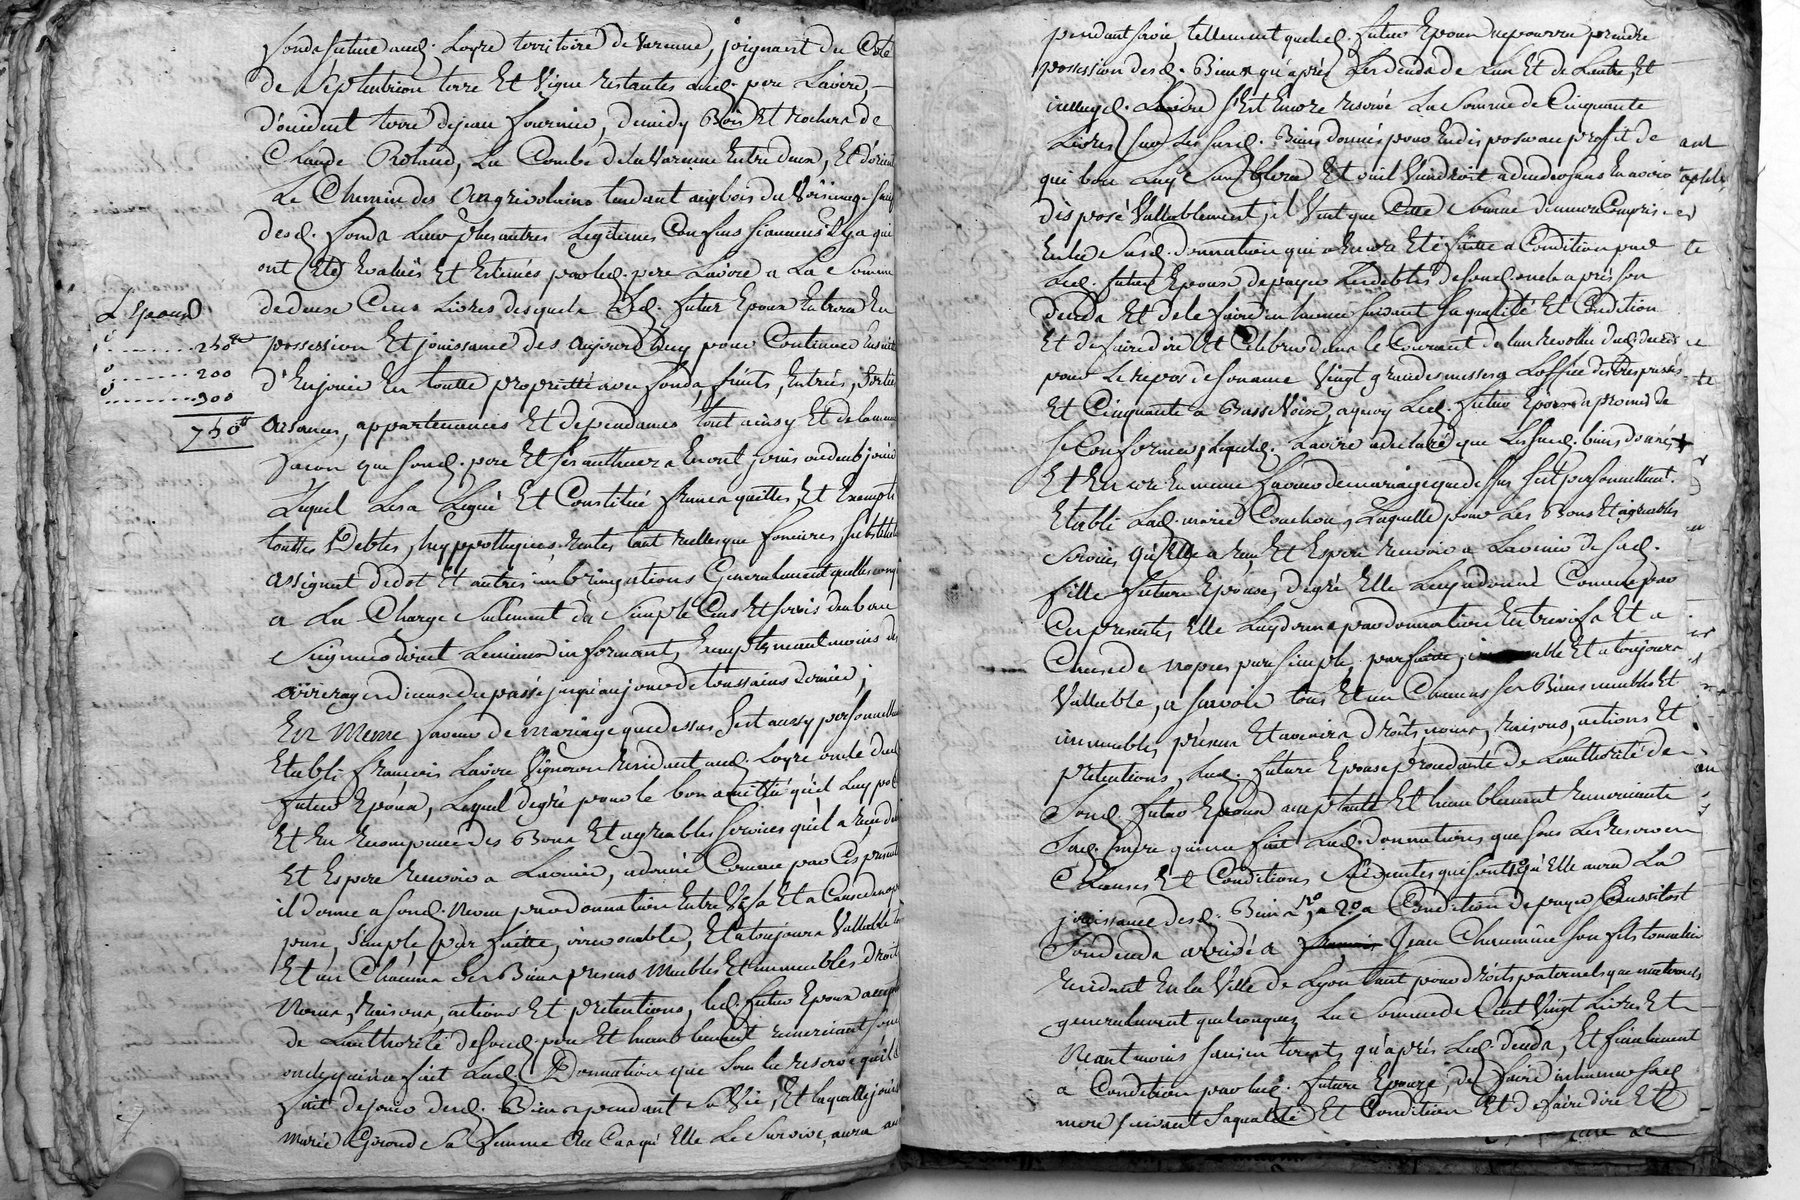 fonds scitué aud. Loyre territoire de Varenne, joignant du Coté
de Septentrion terre Et Vigne restantes aud. pere Lavire,
d'occident terre de jean fournier, de midy Bois Et rochers de
Claude Roland, La Combe de la Varenne Entre deux, Et d'orient
Le Chemin des tendant aux bois du Voisinage sauf
desd. fonds Leurs plus autres Legitimes Confins sy aucuns il y a qui
ont Eté Evalués Et Estimés par led. pere Lavire a La Somme
de deux Cens Livres desquels Led. futur Epoux Entrera En
L'Epoux
250tt
200
300
750tt
possession Et jouissance des aujourd'huy pour Continuer Ensuitte
d'En jouir En toutte proprietté avec fonds, fruits, Entrées, Sorties
aisances, appartenances Et dependances tout ainsy Et de la meme
facon que sond. pere Et ses autheurs En ont joui ou deub jouir
Lequel Les a Legué Et Constitué francs quittes, Et Exempts
touttes Debtes, hyppotheques, rentes tant reelles que foncieres substitutions
assignat de dot Et autres imbringations Generalement quelleconques
a La Charge Seulement du Simple Cens Et servis deub au
Seigneur direct Les mouvant moins des
arrerages d'iceux du passé jusqu'au jour de toussains dernier;
En Meme faveur de mariage que dessus s'est aussy personnellement
Etabli francois Lavire Vigneron Residant aud. Loyre oncle dud.
futur Epoux, Lequel de gré pour le bon amittié qu'il Luy porte
Et En recompense des Bons Et agreables services qu'il a receu
Et Espere recevoir a Lavenir, a donné Comme par Ces presentes
il donne a sond. Neveu par donnation Entre Vifs Et a Cause de noces
pure, Simple parfaitte, irrevocable, Et a toujours Vallable
Et un Chacuns Ses Biens presens Meubles Et immeubles droits
Noms, Raisons, actions Et pretentions, led. futur Epoux acceptant
de L'authorité de sond. pere Et humblement remerciant sond.
oncle qui a fait Lad. Donnation que Sous la reserve qu'il
fait de jouir desd. Biens pendant Sa Vie, Et laquelle jouissance
Marie Gironde Sa femme Au Cas qu' Elle Le Survive, aura
pendant sa vie, tellement que led. futur Epoux ne pourra prendre
possession desd. Biens qu'aprés Les deceds de L'un Et de L'autre, Et
icelluy d. Lavire s'Est Encore reservé La Somme de Cinquante
Livres Sur Les susd. Biens donnés pour En disposer au profit de
qui bon Luy Semblera Et ou il Viendroit a deceder sans En avoir
disposé Vallablement, il Veut que Cette Somme demeure Comprise
En la Susd. donnation qui a Encore Eté faitte a Condition par
Led. futur Epoux de payer Les debtes de sond. oncle aprés son
deceds Et de le faire inhumer suivant sa qualité Et Condition
Et de faire dire Et Celebrer dans le Courant de l'an revollu dud. deceds
pour Le repos de son ame Vingt grandes messes L'office des trespassés
Et Cinquante a Basse Voix, a quoy Led. futur Epoux a promis de
se Conformer, Lequel d. Lavire a declaré que Les susd. biens donnés
Et Encore En meme faveur de mariage que dessus s'est personnellement
Etabli Lad. marie Couchoux, Laquelle pour Les Bons Et agreables
services qu'Elle a reçu Et Espere recevoir a Lavenir de sad.
fille future Epouse, de gré Elle Luy a donné Comme par
Ces presentes Elle Luy donne par donnation Entre vifs Et a
Cause de nopces pure Simple, parfaitte, irrevocable Et a toujours
Vallable, a scavoir tous Et un Chacuns ses Biens meubles Et
immeubles presens Et avenirs droits, noms, raisons, actions Et
pretentions, Lad. future Epouse procedante de L'authorité de
Sond. futur Epoux acceptante Et humblement remerciante
Sad. mere qui n'a fait Lad. donnations que sous Les reserves
Clauses Et Conditions Suivantes que sont 1º qu'Elle aura La
jouissance desd. Biens 2º a Condition de payer aussitost
Son deceds arrivé a Jean Chaumine son fils tonnelier
residant En la Ville de Lyon tant pour droits paternels que maternels
generalement quelconques La Somme de Cent Vingt Livres Et
Neantmoins sans interets qu'aprés Led. deceds, Et finalement
a Condition par lad. future Epouze, de faire inhumer sad.
mere suivant sa qualité Et Condition Et de faire dire Et